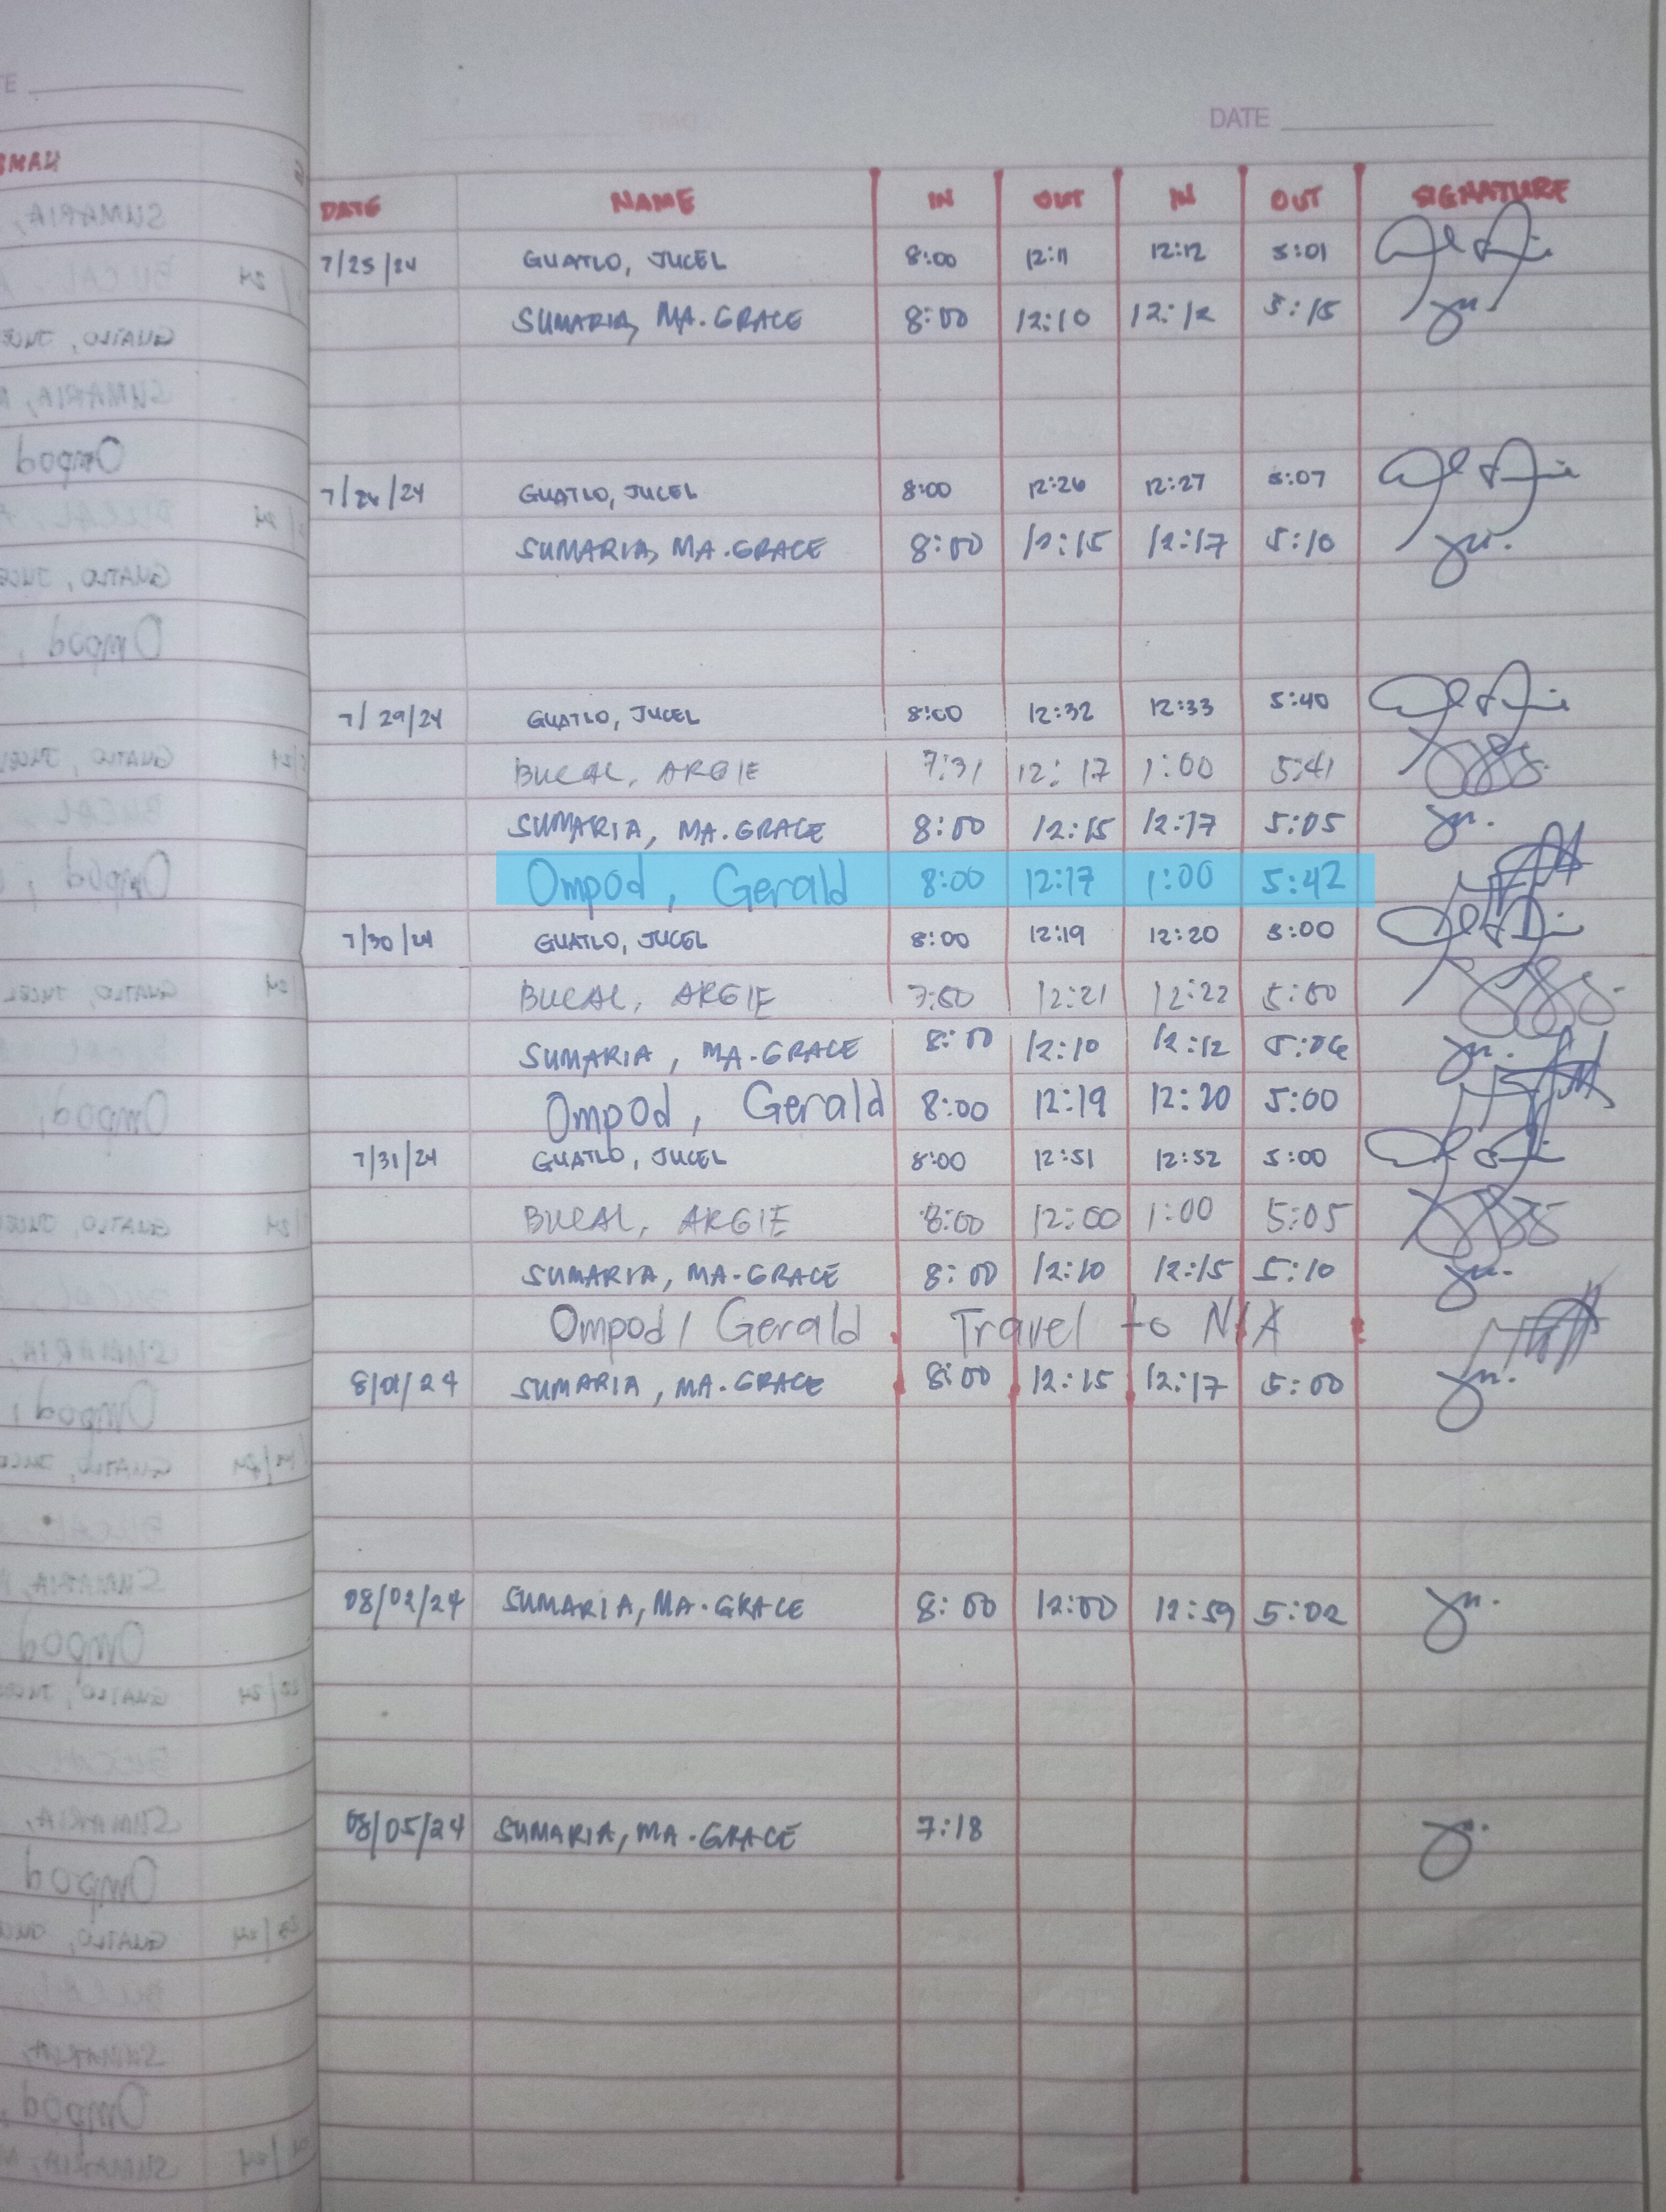 DATE
DATE NAME IN OUT IN OUT SIGNATURE
7/25/24 GUATLO, JUCEL 8:00 12:11 12:12 5:01
SUMARIA, MA. GRACE 8:00 12:10 12:12 5:15
7/26/24 GUATLO, JUCEL 8:00 12:26 12:27 5:07
SUMARIA, MA. GRACE 8:00 12:15 12:17 5:10
7/29/24 GUATLO, JUCEL 8:00 12:32 12:33 5:40
BUCAL, ARGIE 7:31 12:17 1:00 5:41
SUMARIA, MA. GRACE 8:00 12:15 12:17 5:05
Ompod, Gerald 8:00 12:17 1:00 5:42
7/30/24 GUATLO, JUCEL 8:00 12:19 12:20 5:00
BUCAL, ARGIE 7:50 12:21 12:22 5:00
SUMARIA, MA. GRACE 8:00 12:10 12:12 5:06
Ompod, Gerald 8:00 12:19 12:20 5:00
7/31/24 GUATLO, JUCEL 8:00 12:51 12:52 5:00
BUCAL, ARGIE 8:00 12:00 1:00 5:05
SUMARIA, MA. GRACE 8:00 12:10 12:15 5:10
Ompod, Gerald Travel to NIA
8/01/24 SUMARIA, MA. GRACE 8:00 12:15 12:17 5:00
08/02/24 SUMARIA, MA. GRACE 8:00 12:00 12:59 5:02
08/05/24 SUMARIA, MA. GRACE 7:18